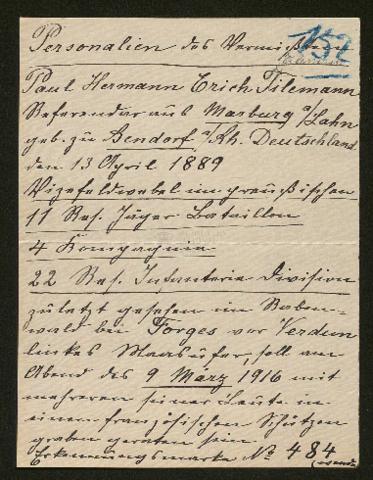 Personalien des Vermißten
152
Paul Hermann Erich Tilemann
Referendar aus Marburg a/Lahn
geb. zu Bendorf a/Rh. Deutschland
den 13 April 1889
Vizefeldwebel im preußischen
11 Res. Jäger Bataillon
4 Kompagnie
22 Res. Infanterie Division
zuletzt gesehen im Raben-
wald bei Forges vor Verdun
linkes Maasufer, soll am
Abend des 9 März 1916 mit
mehreren seiner Leute in
einen französischen Schützen
graben geraten sein.
Erkennungsmarke № 484